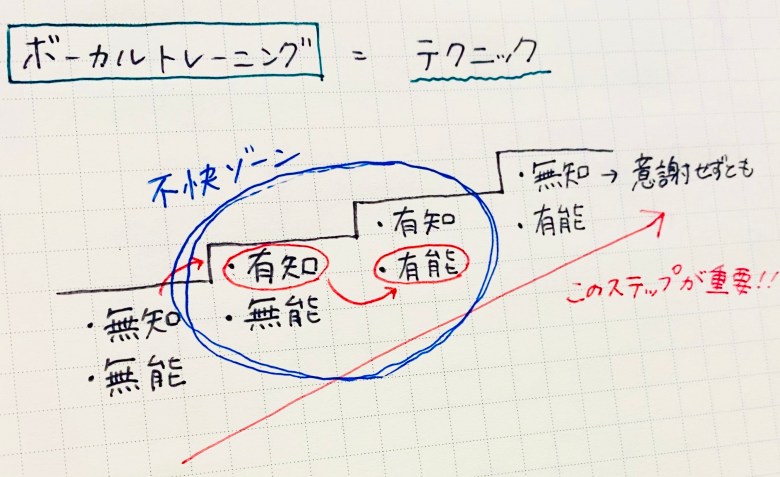 ボーカルトレーニング = テクニック
不快ゾーン
・無知
・無能
・有知
・無能
・有知
・有能
・無知 → 意謝せずとも
・有能
このステップが重要!!